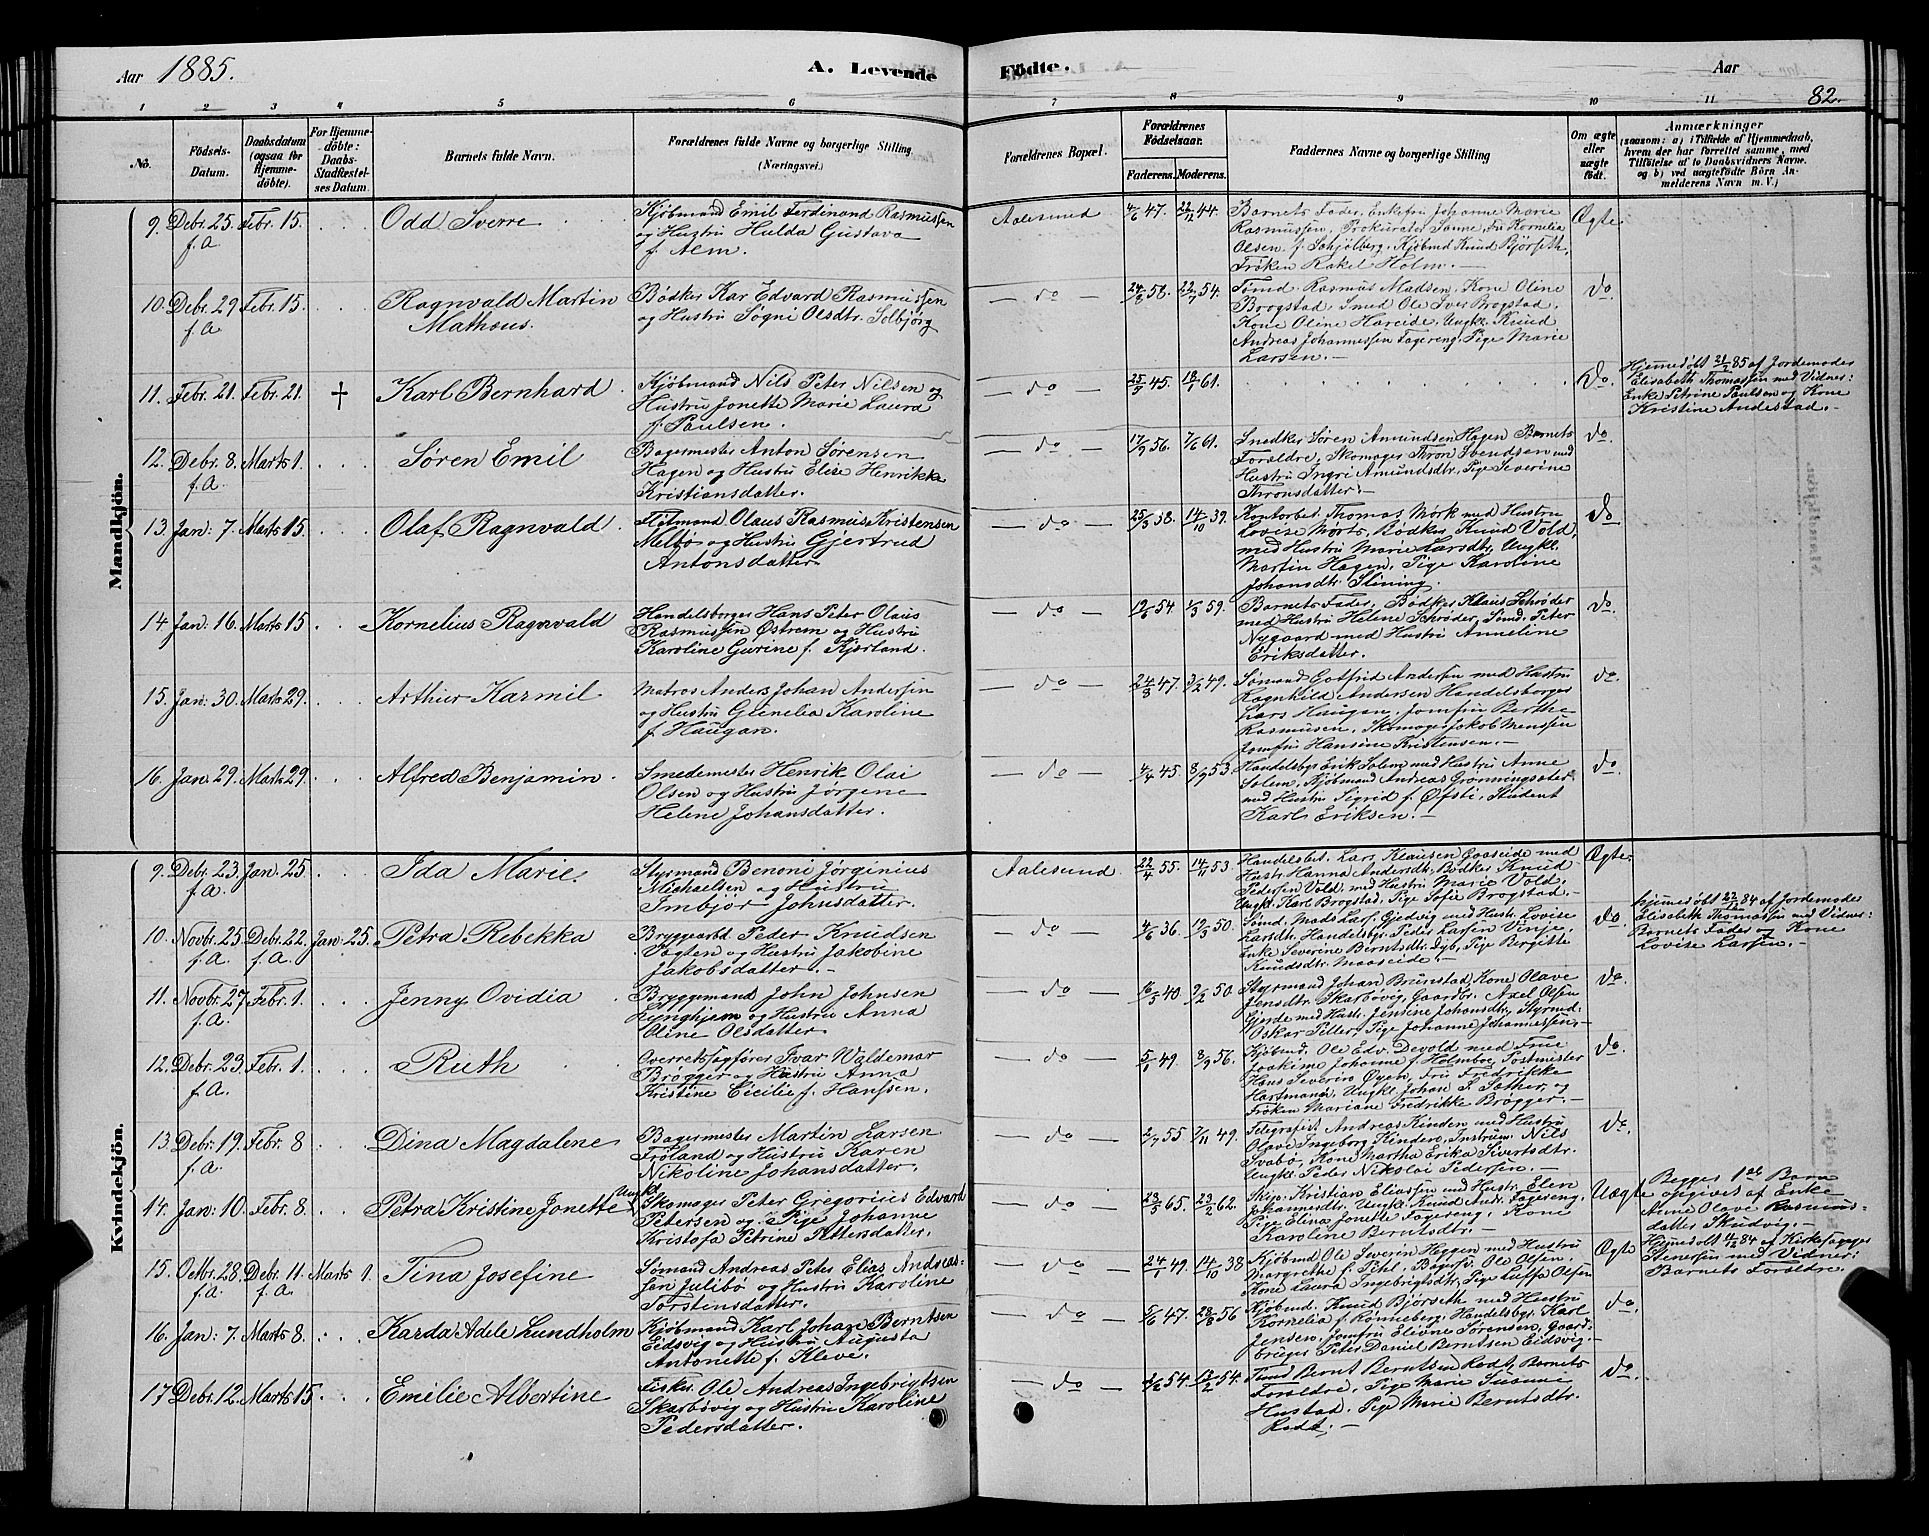 Aar 1885.
A. Levende
Födte.
Aar
82.
1 2 3 4 5 6 7 8 9 10 11
No.
Födsels-Datum.
Daabsdatum (ogsaa for Hjemme-döbte).
For Hjemme-döbte: Daabs-Stadfæstel-ses Datum.
Barnets fulde Navn.
Forældrenes fulde Navne og borgerlige Stilling (Næringsvei).
Forældrenes Bopæl.
Forældrenes Födselsaar.
Faderens. Moderens.
Faddernes Navne og borgerlige Stilling
Om ægte eller uægte födt.
Anmærkninger
(saasom: a) i Tilfælde af Hjemmedaab, hvem der har forrettet samme, med Tilföielse af to Daabsvidners Navne. og b) ved uægtefödte Börn An-melderens Navn m. V.)
Mandkjön.
9. Debr. 25. f.A. Febr. 15. Odd Sverre
Kjöbmand Emil Ferdinand Rasmussen
og Hustru Hulda Gustava
f. Aem.
Aalesund 4/6 47. 22/12 44.
Barnets Fader, Enkefru Johanne Marie
Rasmussen, Prokurator Sanne, Fru Kornelia
Olsen f. Schjölberg, Kjöbmd Knud Björseth,
Fröken Rakel Holm. —
Ægte
10. Debr. 29 f.A. Febr. 15. Ragnvald Martin
Matheus.
Bödker Kar Edvard Rasmussen
og Hustru Sogni Olsdtr. Solbjörg
— do — 24/8 56. 22/7 54.
Rasmus Madsen, Kone Oline
Brogstad, Smed Ole Iver Brogstad,
Kone Oline Hareide, Ungk. Knud
Andreas Johannessen Fagereng, Pige Marie
Larsen. —
do
11. Febr. 21. Febr. 21. † Karl Bernhard
Kjöbmand Nils Peter Nilsen og
Hustru Jonette Marie Laura
f. Paulsen.
— do — 25/3 45. 18/1 61.
do.
Hjemmedöbt 21/2 85 af Jordemoder
Elisabeth Thomassen med Vidner:
Enke Petrine Paulsen og Kone
Kristine Andestad. —
12. Debr. 8. f.A. Marts 1. Søren Emil
Bagermester Anton Sørensen
Hagen og Hustru Elise Henrikke
Kristiansdatter.
— do — 17/9 56. 7/6 61.
Snedker Søren Amundsen Hagen Barnets
Forældre, Skomager Thron Svendsen med
Hustru Ingri Amundsdtr, Pige Severine
Thronsdatter. —
do
13. Jan: 7. Marts 15. Olaf Ragnvald
Flitmand Olaus Rasmus Kristensen
Melbø og Hustru Gjertrud
Antonsdatter.
— do — 25/3 38. 14/10 39.
Kontorbet. Thomas Mork med Hustru
Lovise Mørts, Bödker Knud Vold
med Hustru Marie Larsdtr. Ungkl.
Martin Hagen, Pige Karoline
Johansdtr. Slining.
do
14. Jan: 16. Marts 15. Kornelius Ragnvald
Handelsborger Hans Peter Olaus
Rasmussen Østrem og Hustru
Karoline Gurine f. Kjerland.
— do — 19/6 54. 1/3 59.
Barnets Fader, Bödker Klaus Schrøder
med Hustru Helene Schrøder, Smd. Peter
Nygaard med Hustru Anneline
Eriksdatter.
do
15. Jan: 30. Marts 29. Arthur Karmil
Matros Anders Johan Andersen
og Hustru Gunelia Karoline
f. Haugan.
— do — 24/3 47. 3/2 49.
Sømand Gotfrid Andersen med Hustru
Ragnhild Andersen Handelsborger
Lars Haugan, Jomfru Berthe
Rasmussen, Skomager Jakob Monssen
Jomfru Hansine Kristensen. —
do
16. Jan: 29. Marts 29. Alfred Benjamin.
Smedemester Henrik Olai
Olsen og Hustru Jørgine
Helene Johansdatter.
— do — 4/4 45. 8/9 53.
Handelsbgr Erik Solem med Hustru Anne
Solem, Kjöbmand Andreas Grønningsæter
med Hustru Sigrid f. Øfsti, Student
Karl Eriksen. —
do
Kvindekjön.
9. Debr. 23. f.A. Jan. 25. Ida Marie.
Styrmand Benoni Jörginius
Michaelsen og Hustru
Imbjør Johnsdatter.
Aalesund. 22/4 55. 14/11 53.
Handelsbet. Lars Klausen Gaaseide med
Hustr. Hanna Andersdtr, Bödker Knud
Pedersen Vold, med Hustru Marie Vold,
Ungk. Karl Brogstad, Pige Sofie Brogstad. —
Ægte.
10. Novbr. 25. f.A. Debr. 22. f.A. Jan. 25. Petra Rebekka
Bryggearbd. Peder Knudsen
Vagten og Hustru Jakobine
Jakobsdatter. —
— do — 4/6 36. 19/3 50.
Sömd. Mads Lars. Gjedvig med Hustr. Lovise
Larsdtr. Handelsbgr. Peder Larsen Vinje,
Enke Severine Berntsdtr. Dyb, Pige Bergitte
Knudsdtr. Maaseide. —
do
Hjemmedöbt 22/12 84 af Jordemoder
Elisabeth Thomassen med Vidner:
Barnets Fader og Kone
Lovise Larsen. —
11. Novbr. 27. f.A. Febr. 1. Jenny Ovidia
Bryggemand John Johnsen
Lynghjem og Hustru Anna
Oline Olsdatter.
— do — 16/5 40. 9/2 50.
Styrmand Johan Brunstad, Kone Olave
Jensdtr. Skarbövig, Gaardbr. Axel Olsen
Gjerde med Hustr. Jensine Johansdtr, Styrmd.
Oskar Piller, Pige Johanne Johannessen. —
do
12. Debr. 23. f.A. Febr. 1. Ruth
Overretssagfører Ivar Waldemar
Brøgger og Hustru Anna
Kristine Cicilie f. Hanssen.
— do — 5/1 49. 8/9 56.
Kjöbmd. Ole Edv. Devold med Frue
Joakime Johanne f. Holmboe, Postmester
Hans Severin Øyen, Fru Fredrikke
Hartmann, Ungk. Johan S. Sather, og
Fröken Mariane Fredrikke Brøgger. —
do
13. Debr. 19. f.A. Febr. 8 Dina Magdalene
Bagermester Martin Larsen
Frøland og Hustru Karen
Nikoline Johansdatter.
— do — 2/7 55 7/11 49.
Telegrafist Andreas Kinden med Hustru
Olave Ingeborg Kinden, Instrum. Nils
Svabø, Kone Martha Erika Sivertsdtr.
Ungk. Peder Nikolai Pedersen. —
do.
14. Jan: 10. Febr. 8. Petra Kristine Jonette
Ungkl. Skomager Peter Gregorius Edvard
Petersen og Pige Johanne
Kristofa Petrine Pettersdatter.
— do — 23/5 65. 23/2 62.
Skip. Kristian Eliassen med Hustr. Elen
Johannesdtr. Ungk. Knud Andr. Fagereng,
Pige Elina Jonette Fagereng, Kone
Karoline Berntsdtr. —
Uægte
Begges 1ste Barn
opgivet af Enke
Anne Olave Rasmus-
datter Skudvig. —
15. Octbr. 28. f.A. Debr. 11. f.A. Marts 1. Tina Josefine
Sømand Andreas Peter Elias Andreas-
sen Julibø og Hustru Karoline
Torstensdatter.
— do — 24/1 49. 14/10 38
Kjöbmd Ole Severin Heggen med Hustru
Margrethe f. Pehl, Bagersv. Ole Olsen
Kone Laura Ingebrigtsdtr, Pige Luffa Olsen
Ægte
Hjemmedöbt 11/12 84 af Kirkesanger
Stenersen med Vidner:
Barnets Forældre.
16. Jan: 7. Marts 8. Karda Adele Lundholm
Kjöbmand Karl Johan Berntsen
Eidsvig og Hustru Augusta
Antonette f. Kleve.
— do — 5/6 47. 28/8 56
Kjöbmd. Knud Björseth med Hustru
Kornelia f. Rønneberg, Handelsbgr. Karl
Jensen, Jomfru Elevne Sørensen, Gaard-
bruger Peter Daniel Berntsen Eidsvig. —
do
17 Debr. 12. Marts 15 Emilie Albertine
Fisker Ole Andreas Ingebrigtsen
Skarbøvig og Hustru Karoline
Pedersdatter.
— do — 2/2 54. 13/2 54.
Bernt Berntsen Rødt, Barnets
Forældre, Pige Marie Susanne
Hustad, Pige Marie Berntsdtr.
Rødt. —
do